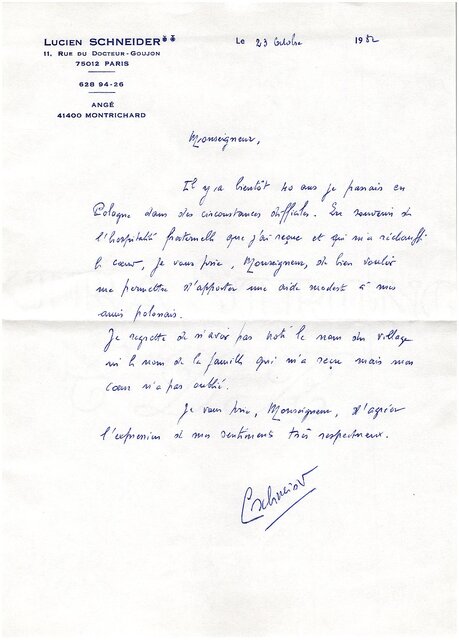 LUCIEN SCHNEIDER**
11, RUE DU DOCTEUR-GOUJON
75012 PARIS
628 94-26
ANGÉ
41400 MONTRICHARD
Le 23 Octobre 1982
Monseigneur,
Il y a bientôt 40 ans je passais en
Pologne dans des circonstances difficiles. En souvenir de
l'hospitalité fraternelle que j'ai reçue et qui m'a réchauffé
le cœur, je vous prie, Monseigneur, de bien vouloir
me permettre d'apporter une aide modeste à mes
amis polonais.
Je regrette de n'avoir pas noté le nom du village
ni le nom de la famille qui m'a reçu mais mon
cœur n'a pas oublié.
Je vous prie, Monseigneur, d'agréer
l'expression de mes sentiments très respectueux.
LSchneider